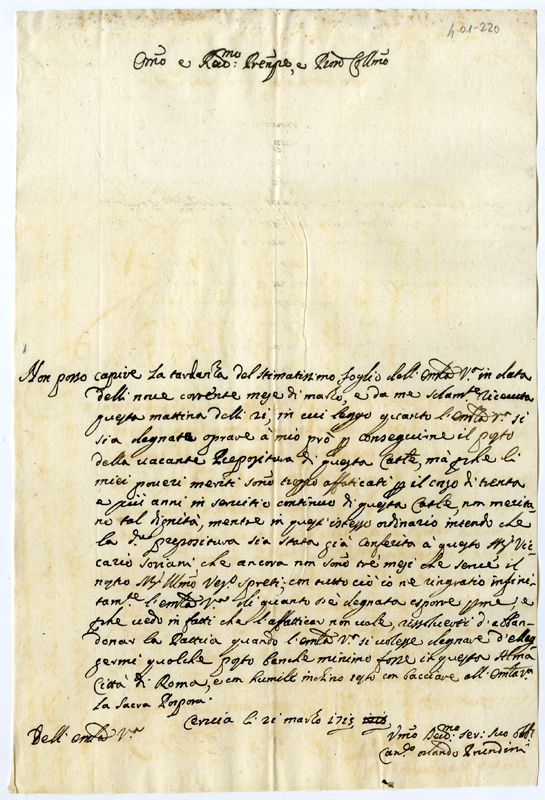 4-01-220
Emo e Reumo: Prenpe, e Pron Collmo
Non posso capire la tardanza del stimatissimo foglio dell' Emza Va in data
delli noue corrente mese di marzo, e da me solamte riceuuta
questa mattina delli 21, in cui leggo quanto l'emza Va si
sia degnata oprare à mio prò p conseguirne il posto
della uacante Prepositura di questa Catle, ma perche li
miei poueri meriti sono troppo affaticati p il corso di trenta
e più anni in seruitio continuo di questa Catle, non merita-
no tal dignità, mentre in quest' istesso ordinario intendo che
la da prepositura sia stata già conferita à questo Sigr Vic-
cario Soriani che ancora non sono trè mesi che serue il
nostro Monsr Illmo Vesco Spreti; con tutto ciò io ne ringratio infini-
tamte l'emza Va di quanto s'è degnata esporre p me, e
perche uedo in fatti che l'affaticar non uale, rissoluerei d'abban-
donar la Patria quando l'emza Va si uolesse degnare d'eleg-
germi qualche posto benche minimo fosse in questa Alma
Città di Roma, e con humile inchino resto con bacciare all' Emza Va
la Sacra Porpora.
Ceruia li 21 marzo 1713
Dell' emza Va
Vmo Deumo: Ser: Suo obblo
Cano Orlando